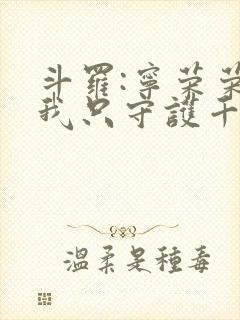 斗羅:寧荣荣
我只守護千
溫柔是種毒